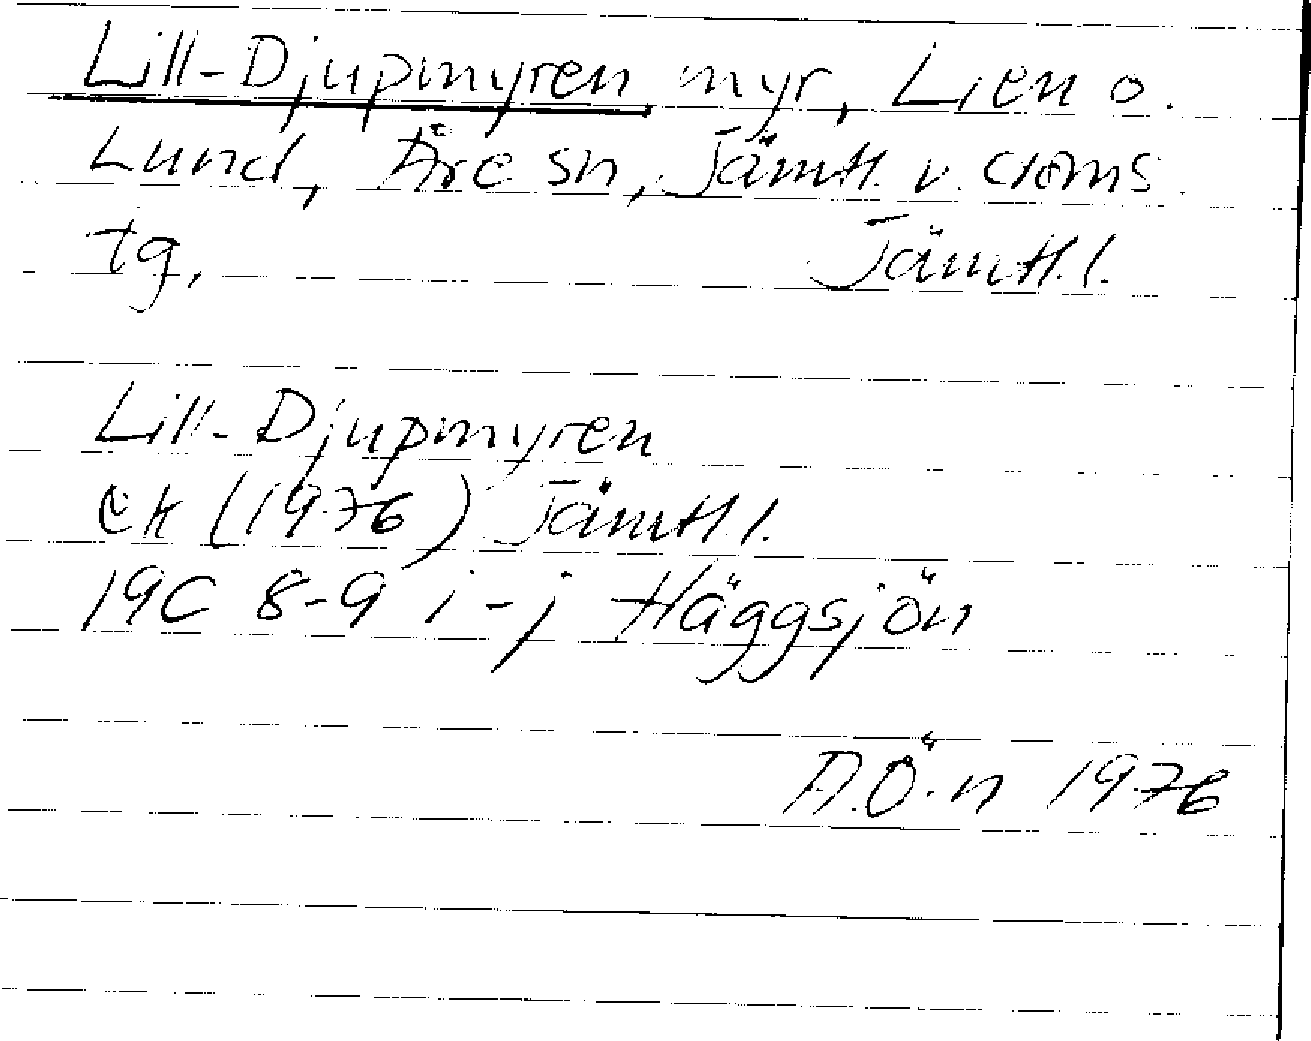 Lill-Djupmyren, myr, Lien o.
Lund, Åre sn, Jämtl. v. doms
tg, Jämtl. l.
Lill-Djupmyren
ek (1976) Jämtl l.
19C 8-9 i-j Häggsjön
A.Ö.n 1976